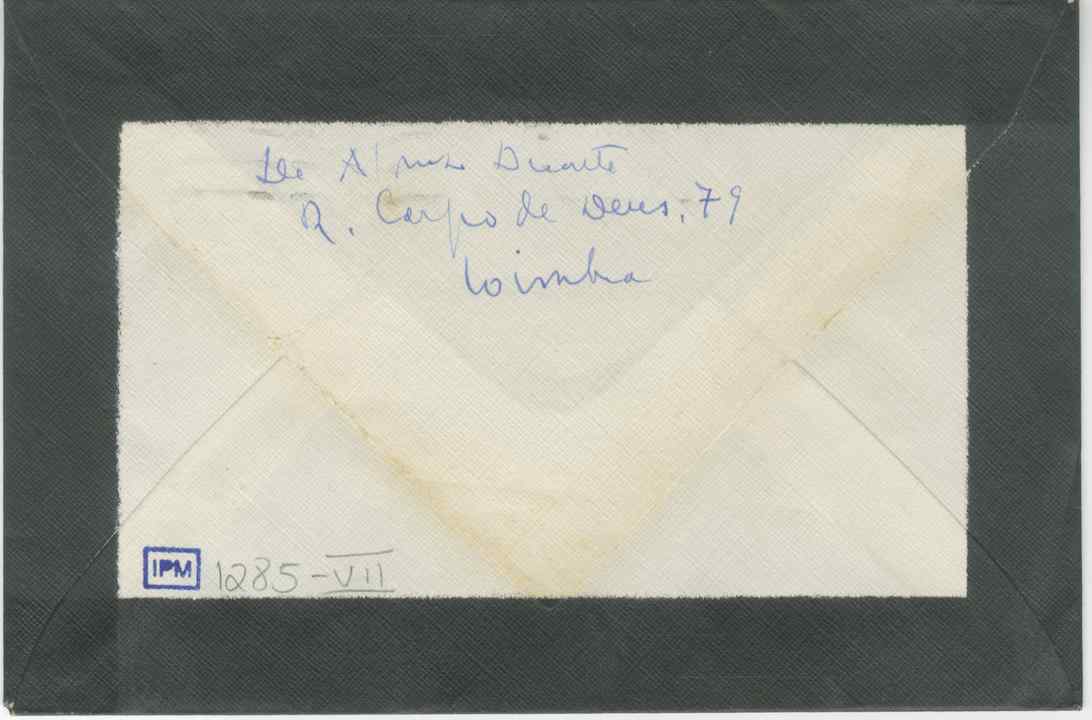 De A Duarte
R. Corpo de Deus, 79
Coimbra
IPM 1285-VII